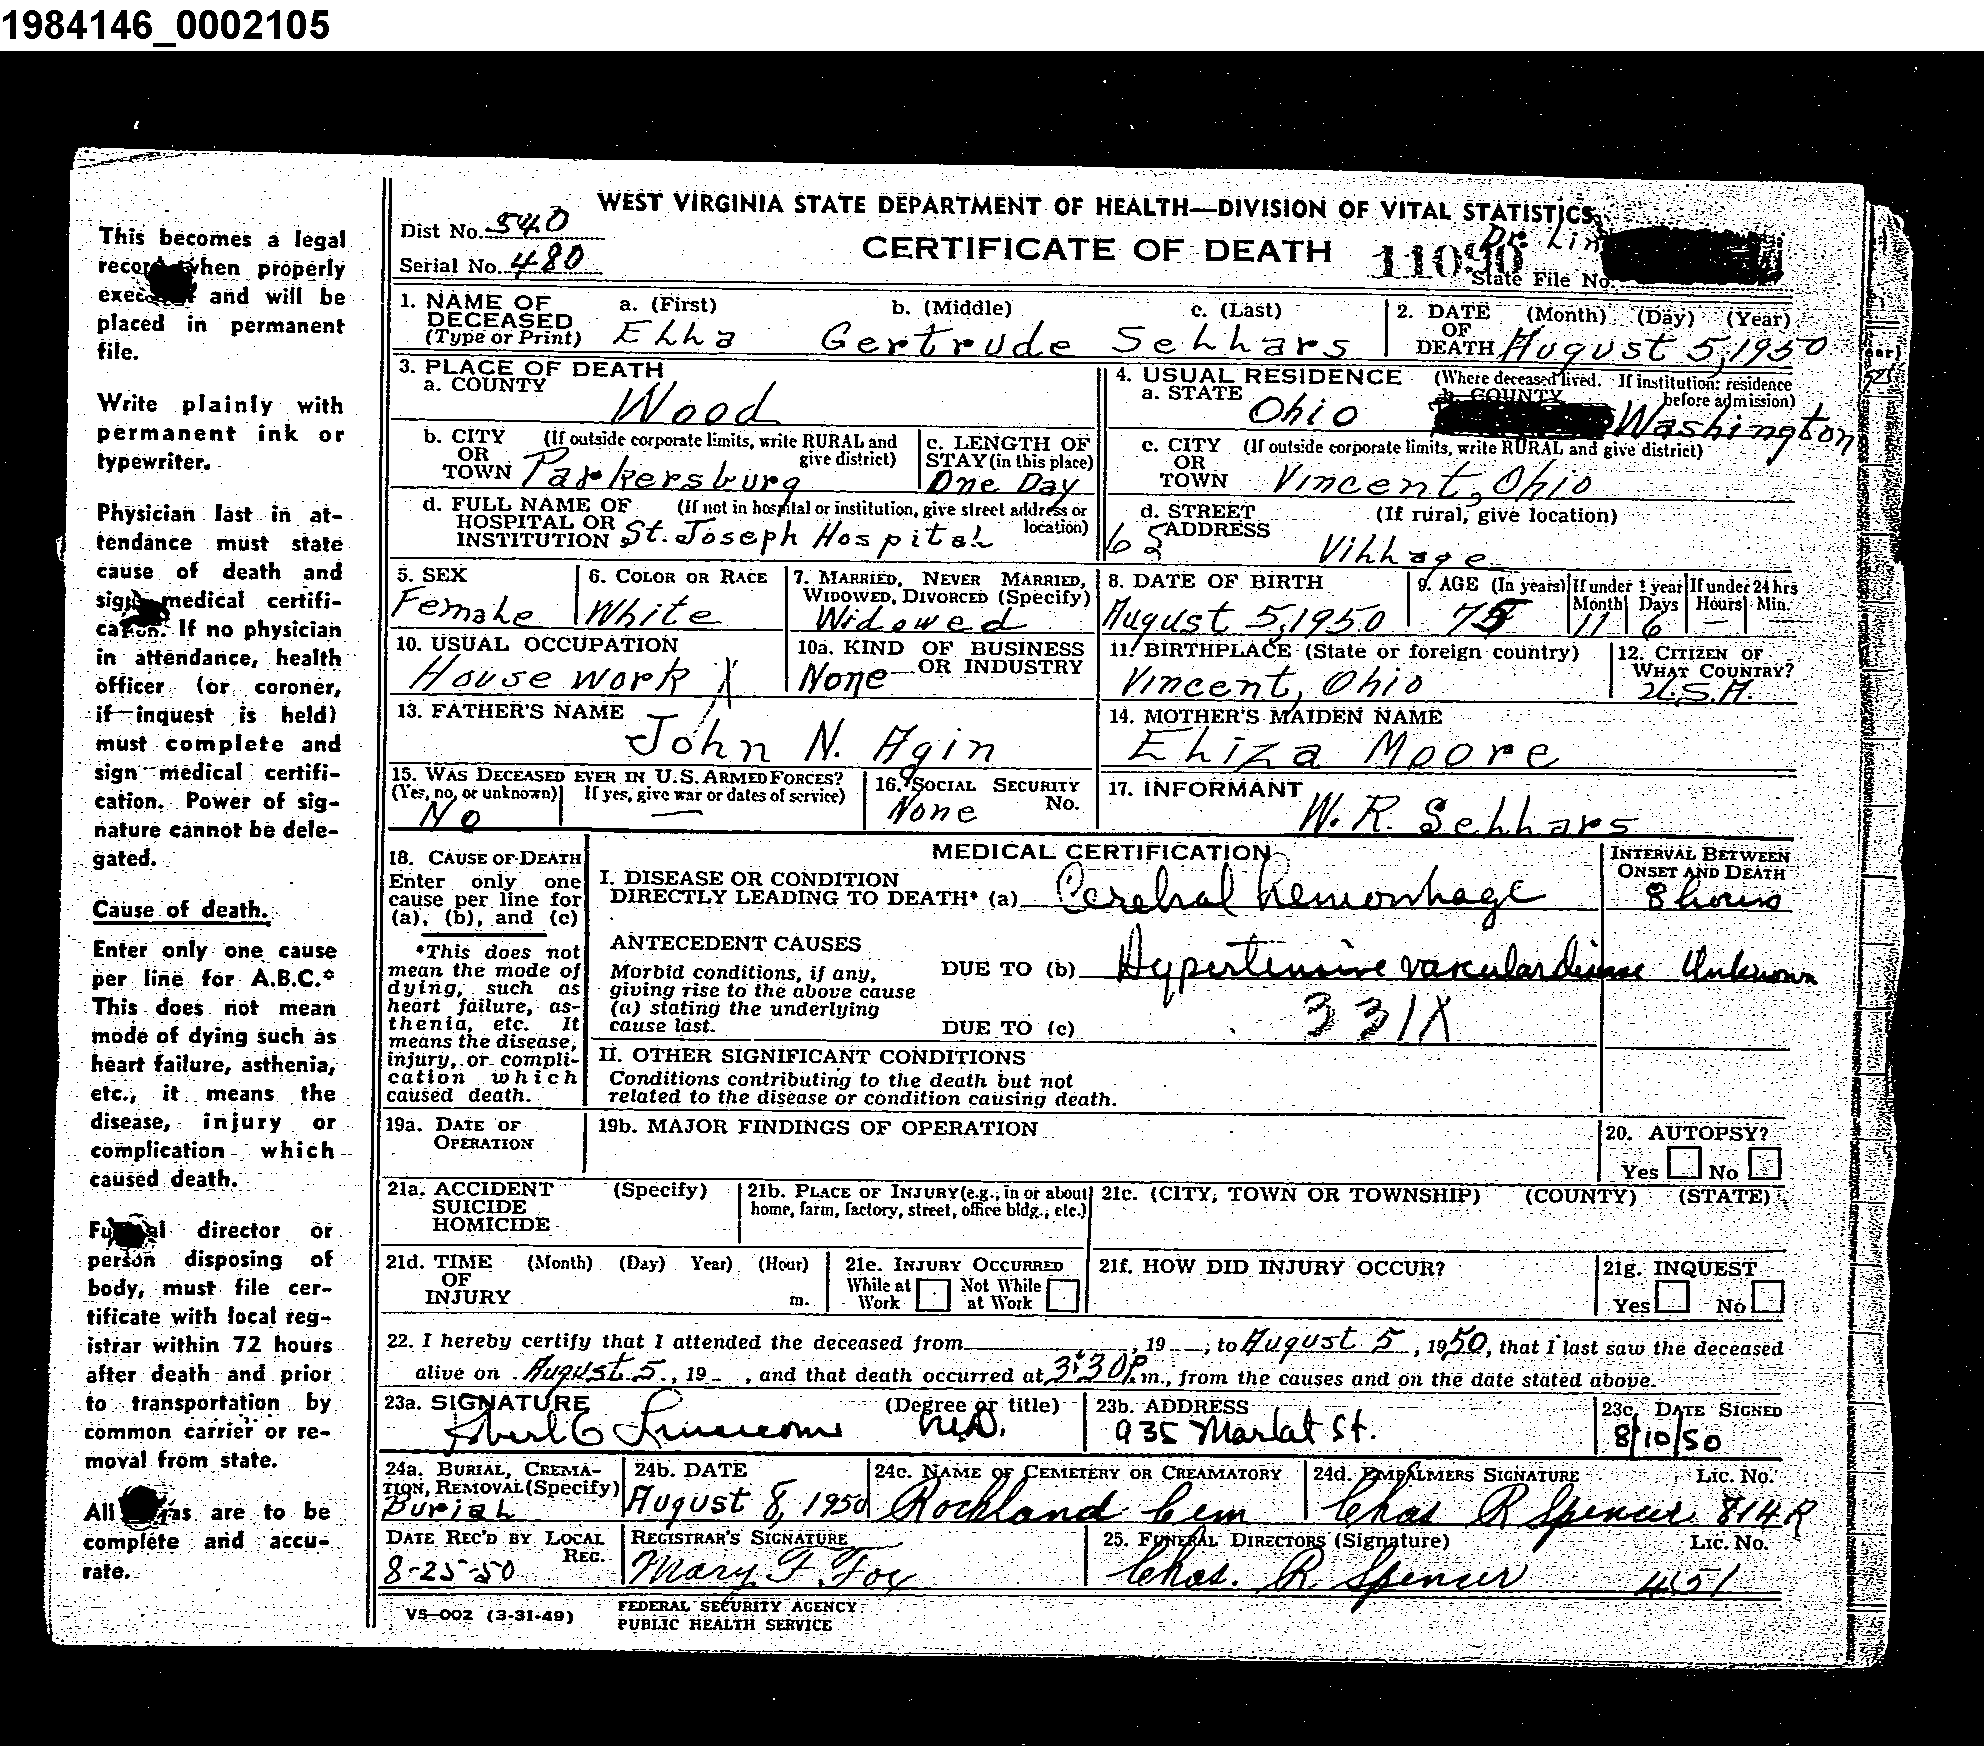 1984146_0002105
This becomes a legal
record when properly
and will be
placed in permanent
file.
Write plainly with
permanent ink or
typewriter.
Physician last in at-
tendance must state
cause of death and
sign medical certifi-
cation. If no physician
in attendance, health
officer (or coroner,
if inquest is held)
must complete and
sign medical certifi-
cation. Power of sig-
nature cannot be dele-
gated.
Cause of death.
Enter only one cause
per line for A.B.C.*
This does not mean
mode of dying such as
heart failure, asthenia,
etc., it means the
disease, injury or
complication which
caused death.
Funeral director or
person disposing of
body, must file cer-
tificate with local reg-
istrar within 72 hours
after death and prior
to transportation by
common carrier or re-
moval from state.
All are to be
complete and accu-
rate.
WEST VIRGINIA STATE DEPARTMENT OF HEALTH—DIVISION OF VITAL STATISTICS
Dist No. 540
Serial No. 480
CERTIFICATE OF DEATH
Dr. Lin
State File No.
1. NAME OF DECEASED (Type or Print) a. (First) b. (Middle) c. (Last)
Ella Gertrude Sellars
2. DATE OF DEATH (Month) (Day) (Year)
August 5, 1950
3. PLACE OF DEATH
a. COUNTY Wood
4. USUAL RESIDENCE (Where deceased lived. If institution: residence before admission)
a. STATE Ohio b. COUNTY Washington
b. CITY OR TOWN (If outside corporate limits, write RURAL and give district) Parkersburg
c. LENGTH OF STAY (in this place) One Day
c. CITY OR TOWN (If outside corporate limits, write RURAL and give district) Vincent, Ohio
d. FULL NAME OF HOSPITAL OR INSTITUTION (If not in hospital or institution, give street address or location) St. Joseph Hospital
d. STREET ADDRESS (If rural, give location) Village
5. SEX Female
6. COLOR OR RACE White
7. MARRIED, NEVER MARRIED, WIDOWED, DIVORCED (Specify) Widowed
8. DATE OF BIRTH August 5, 1950
9. AGE (In years) 75 If under 1 year Month 11 Days 6 If under 24 hrs Hours — Min.
10. USUAL OCCUPATION House work X
10a. KIND OF BUSINESS OR INDUSTRY None
11. BIRTHPLACE (State or foreign country) Vincent, Ohio
12. CITIZEN OF WHAT COUNTRY? U.S.A.
13. FATHER'S NAME John N. Agin
14. MOTHER'S MAIDEN NAME Eliza Moore
15. WAS DECEASED EVER IN U.S. ARMED FORCES? (Yes, no, or unknown) No If yes, give war or dates of service) —
16. SOCIAL SECURITY No. None
17. INFORMANT W. R. Sellars
18. CAUSE OF DEATH
Enter only one
cause per line for
(a), (b), and (c)
*This does not
mean the mode of
dying, such as
heart failure, as-
thenia, etc. It
means the disease,
injury, or compli-
cation which
caused death.
MEDICAL CERTIFICATION
INTERVAL BETWEEN ONSET AND DEATH
I. DISEASE OR CONDITION
DIRECTLY LEADING TO DEATH* (a) Cerebral hemorrhage 8 hours
ANTECEDENT CAUSES
Morbid conditions, if any,
giving rise to the above cause
(a) stating the underlying
cause last.
DUE TO (b) Hypertensive vascular disease Unknown
DUE TO (c) 331X
II. OTHER SIGNIFICANT CONDITIONS
Conditions contributing to the death but not
related to the disease or condition causing death.
19a. DATE OF OPERATION
19b. MAJOR FINDINGS OF OPERATION
20. AUTOPSY?
Yes No
21a. ACCIDENT SUICIDE HOMICIDE (Specify)
21b. PLACE OF INJURY (e.g., in or about home, farm, factory, street, office bldg., etc.)
21c. (CITY, TOWN OR TOWNSHIP) (COUNTY) (STATE)
21d. TIME OF INJURY (Month) (Day) Year) (Hour) m.
21e. INJURY OCCURRED
While at Work Not While at Work
21f. HOW DID INJURY OCCUR?
21g. INQUEST
Yes No
22. I hereby certify that I attended the deceased from , 19 , to August 5, 1950, that I last saw the deceased
alive on August 5, 19 , and that death occurred at 3:30 P. m., from the causes and on the date stated above.
23a. SIGNATURE (Degree or title) M.D.
23b. ADDRESS 935 Market St.
23c. DATE SIGNED 8/10/50
24a. BURIAL, CREMATION, REMOVAL (Specify) Burial
24b. DATE August 8, 1950
24c. NAME OF CEMETERY OR CREAMATORY Rockland Cem
24d. EMBALMERS SIGNATURE Lic. No. Chas R Spencer 814R
DATE REC'D BY LOCAL REG. 8-25-50
REGISTRAR'S SIGNATURE Mary F. Fox
25. FUNERAL DIRECTORS (Signature) Lic. No. Chas. R Spencer 451
VS-002 (3-31-49)
FEDERAL SECURITY AGENCY
PUBLIC HEALTH SERVICE